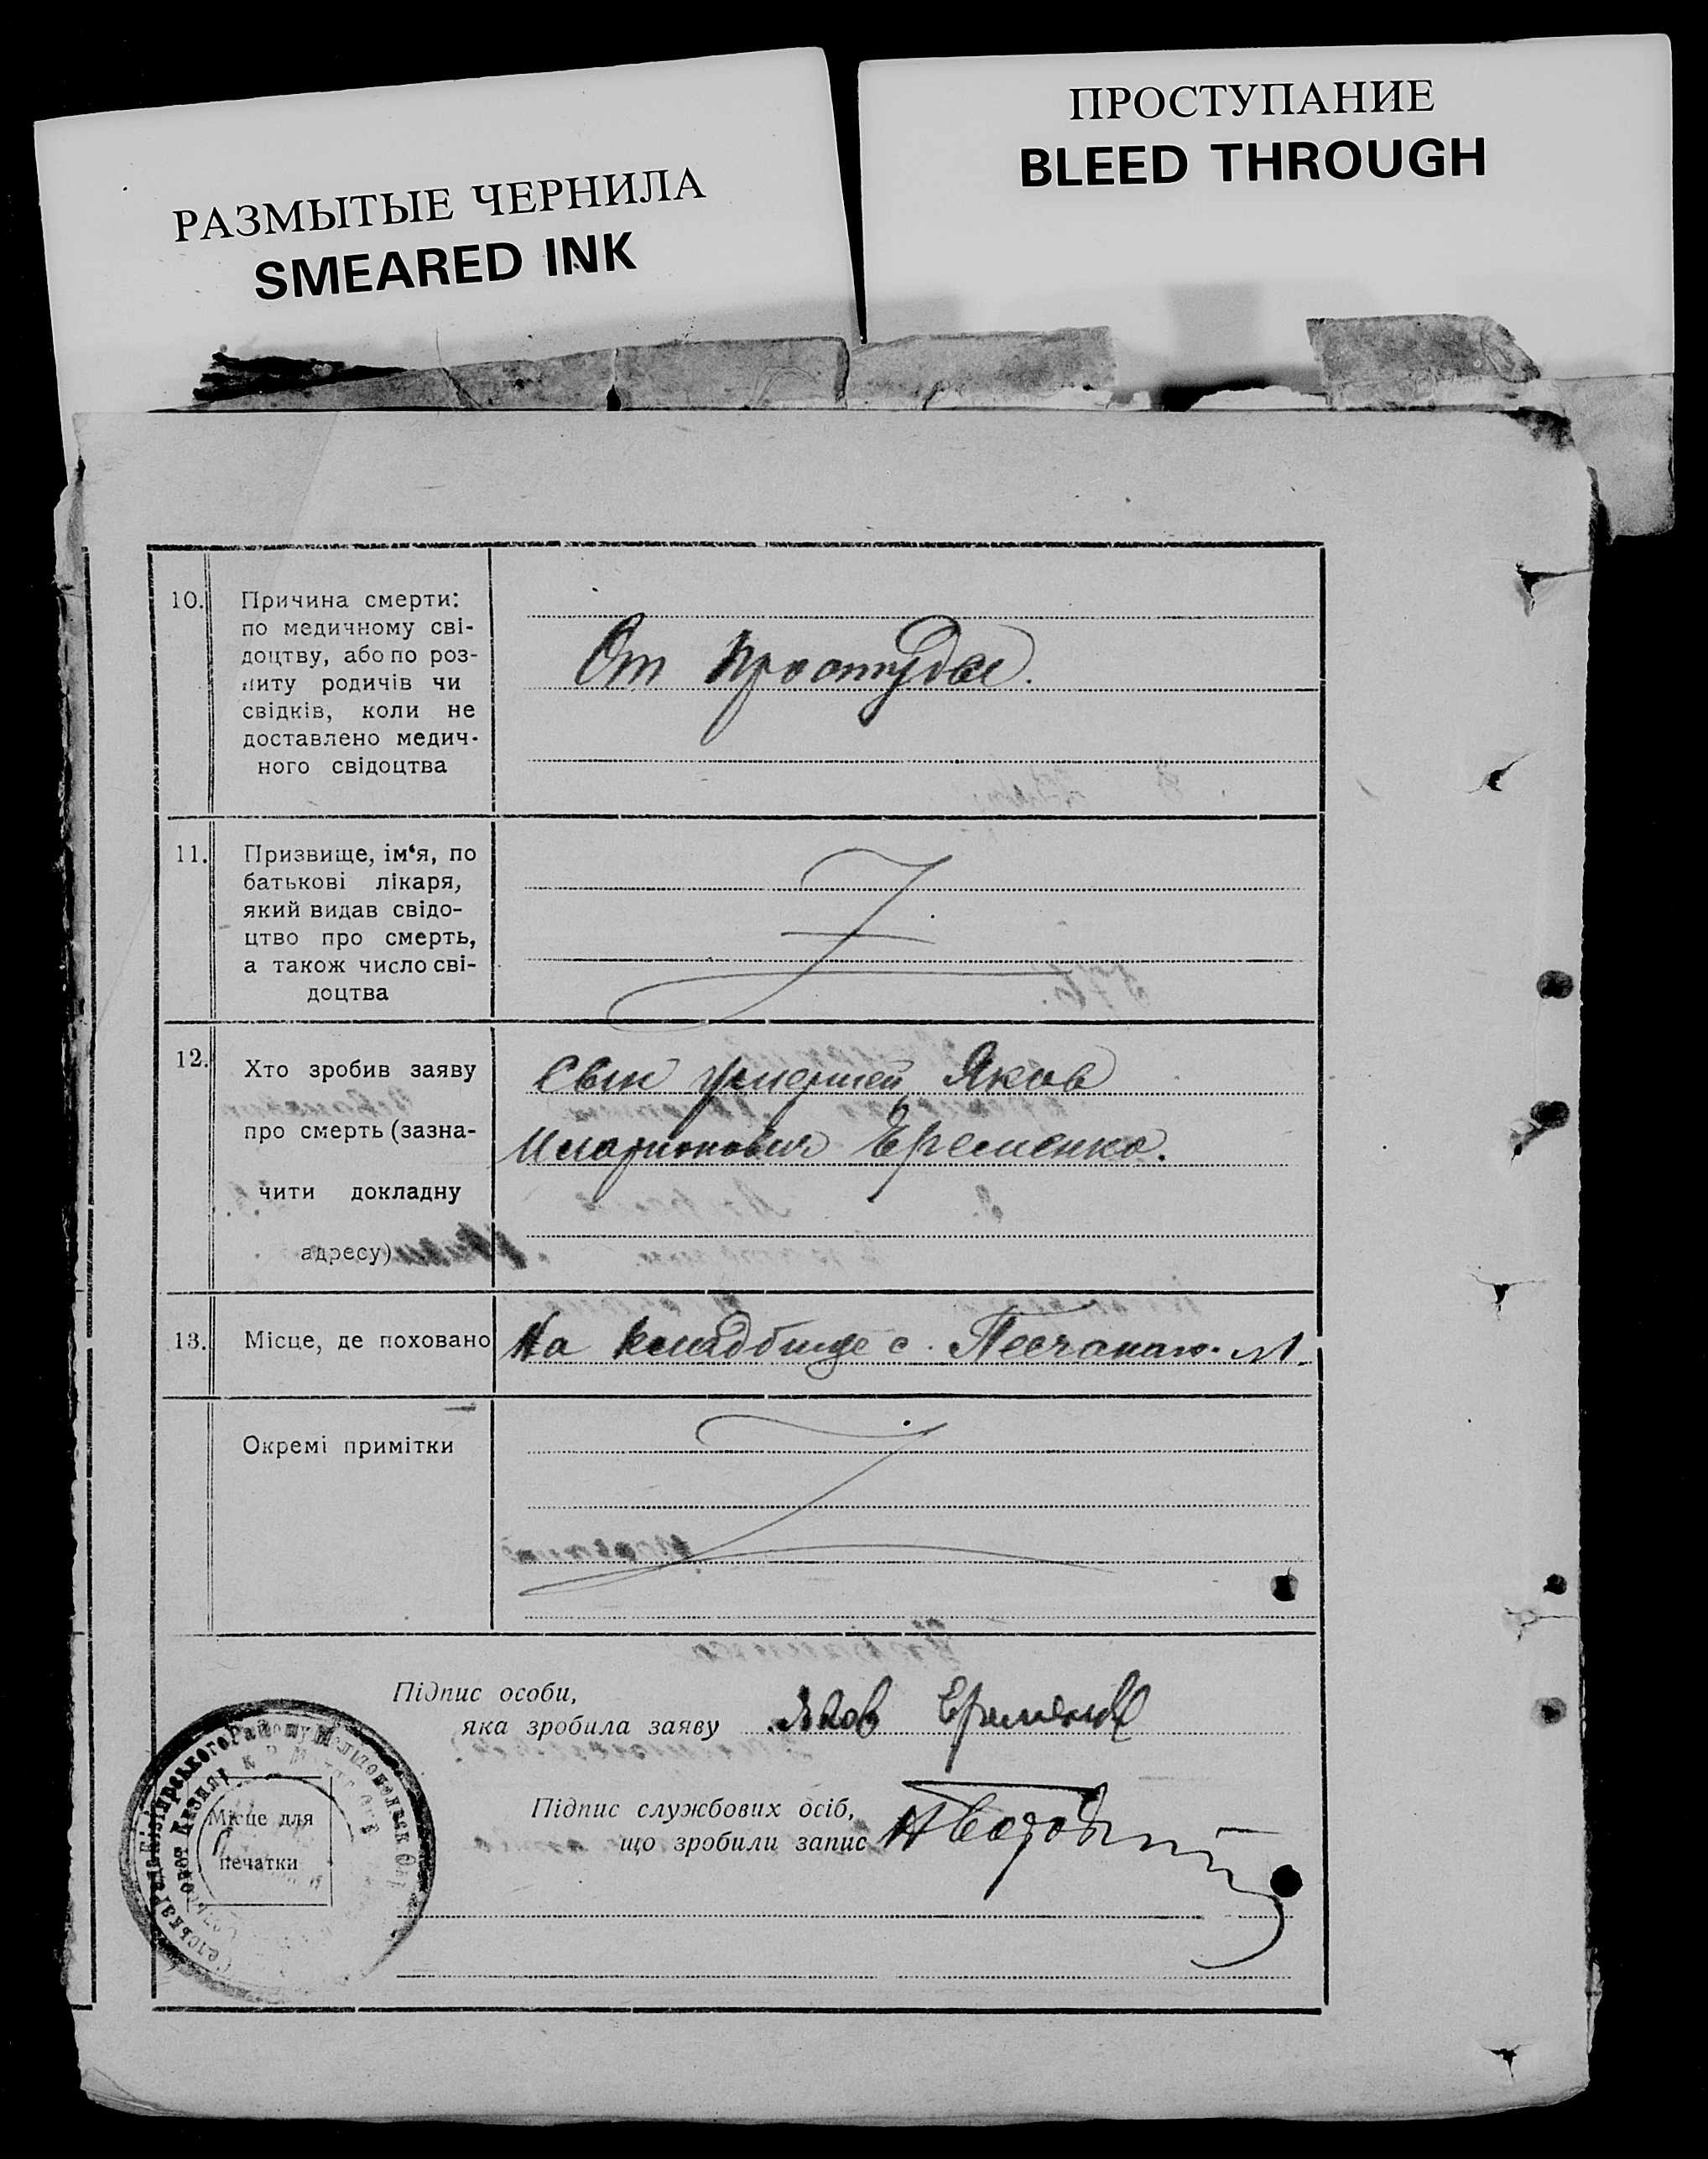 РАЗМЫТЫЕ ЧЕРНИЛА
SMEARED INK
ПРОСТУПАНИЕ
BLEED THROUGH
10.
Причина смерти:
по медичному сві-
доцтву, або по роз-
питу родичів чи
свідків, коли не
доставлено медич-
ного свідоцтва
От простуды.
11.
Призвище, ім‘я, по
батькові лікаря,
який видав свідо-
цтво про смерть,
а також число сві-
доцтва
12.
Хто зробив заяву
про смерть (зазна-
чити докладну
адресу)
Сын умершей Яков
Иларионович Еременко.
13.
Місце, де поховано
На кладбище с. Песчаного.
Окремі примітки
Підпис особи,
яка зробила заяву
Яков Еременко
Підпис службових осіб,
що зробили запис
Місце для
печатки